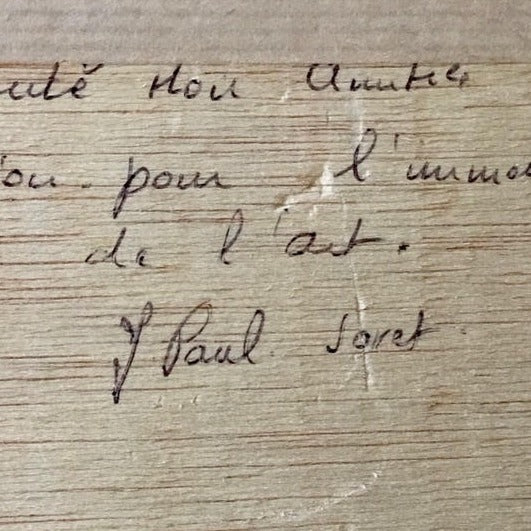 uté mon amitié
ion pour l'immo
de l'art.
J Paul Soret